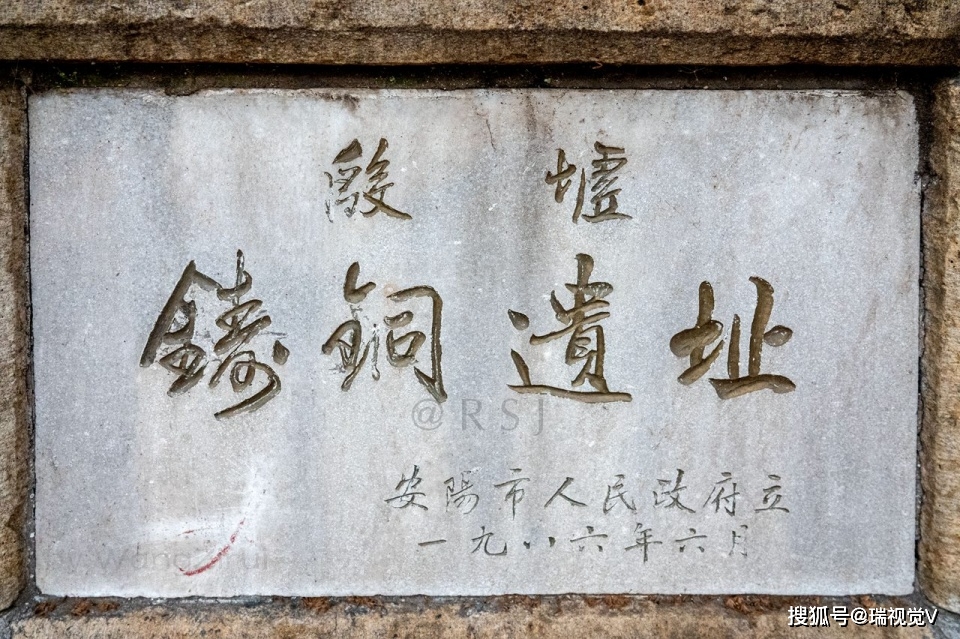 殷墟
鑄銅遺址
@RSJ
安陽市人民政府立
一九八六年六月
搜狐号@瑞视觉V